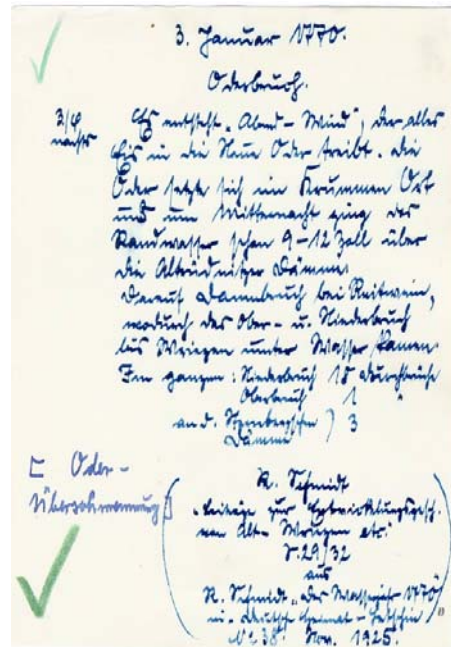 3. Januar 1770.
Oderbruch.
3/4 nachts
Es entsteht „Abend-Wind", der alles
Eis in die Neue Oder treibt. Die
Oder setzte sich im Krummen Ort
und um Mitternacht ging das
Randwasser schon 9-12 Zoll über
die Altrüdnitzer Dämme.
Darauf Dammbruch bei Reitwein,
wodurch das Ober- u. Niederbruch
bis Wriezen unter Wasser kamen.
Im ganzen: Niederbruch 18 Durchbrüche
Oberbruch 1 "
an d. Sternbergschen ) 3
Dämme
[ Oder-
Überschwemmung ]
R. Schmidt
„Beiträge zur Entwicklungsgesch.
von Alt-Wriezen etc."
S. 29/32
aus
R. Schmidt „Das Wasserjahr 1770"
in Heimat - Letschin
No 38 Nov. 1925.